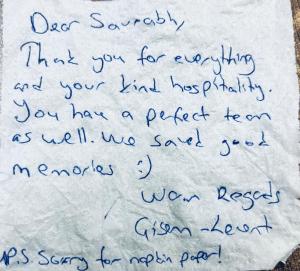 Dear Saurabh,
Thank you for everything
and your kind hospitality.
You have a perfect team
as well. We saved good
memories :)
Warm Regads
Gizem - Levent
P.S Sorry for napkin paper!